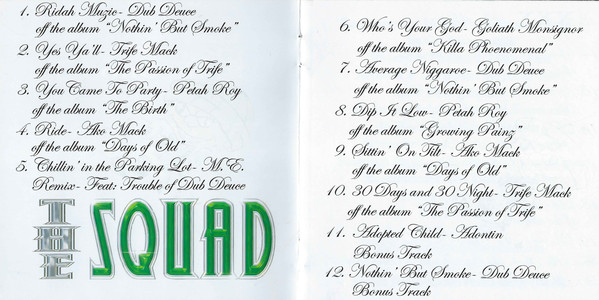 1. Ridah Muzic- Dub Deuce
off the album "Nothin' But Smoke"
2. Yes Ya'll- Trife Mack
off the album "The Passion of Trife"
3. You Came To Party- Petah Roy
off the album "The Birth"
4. Ride- Ako Mack
off the album "Days of Old"
5. Chillin' in the Parking Lot- M.E.
Remix- Feat: Trouble of Dub Deuce
THE SQUAD
6. Who's Your God- Goliath Monsignor
off the album "Killa Phoenomenal"
7. Average Niggaroe- Dub Deuce
off the album "Nothin' But Smoke"
8. Dip It Low- Petah Roy
off the album "Growing Painz"
9. Sittin' On Tilt- Ako Mack
off the album "Days of Old"
10. 30 Days and 30 Night- Trife Mack
off the album "The Passion of Trife"
11. Adopted Child- Adontin
Bonus Track
12. Nothin' But Smoke- Dub Deuce
Bonus Track